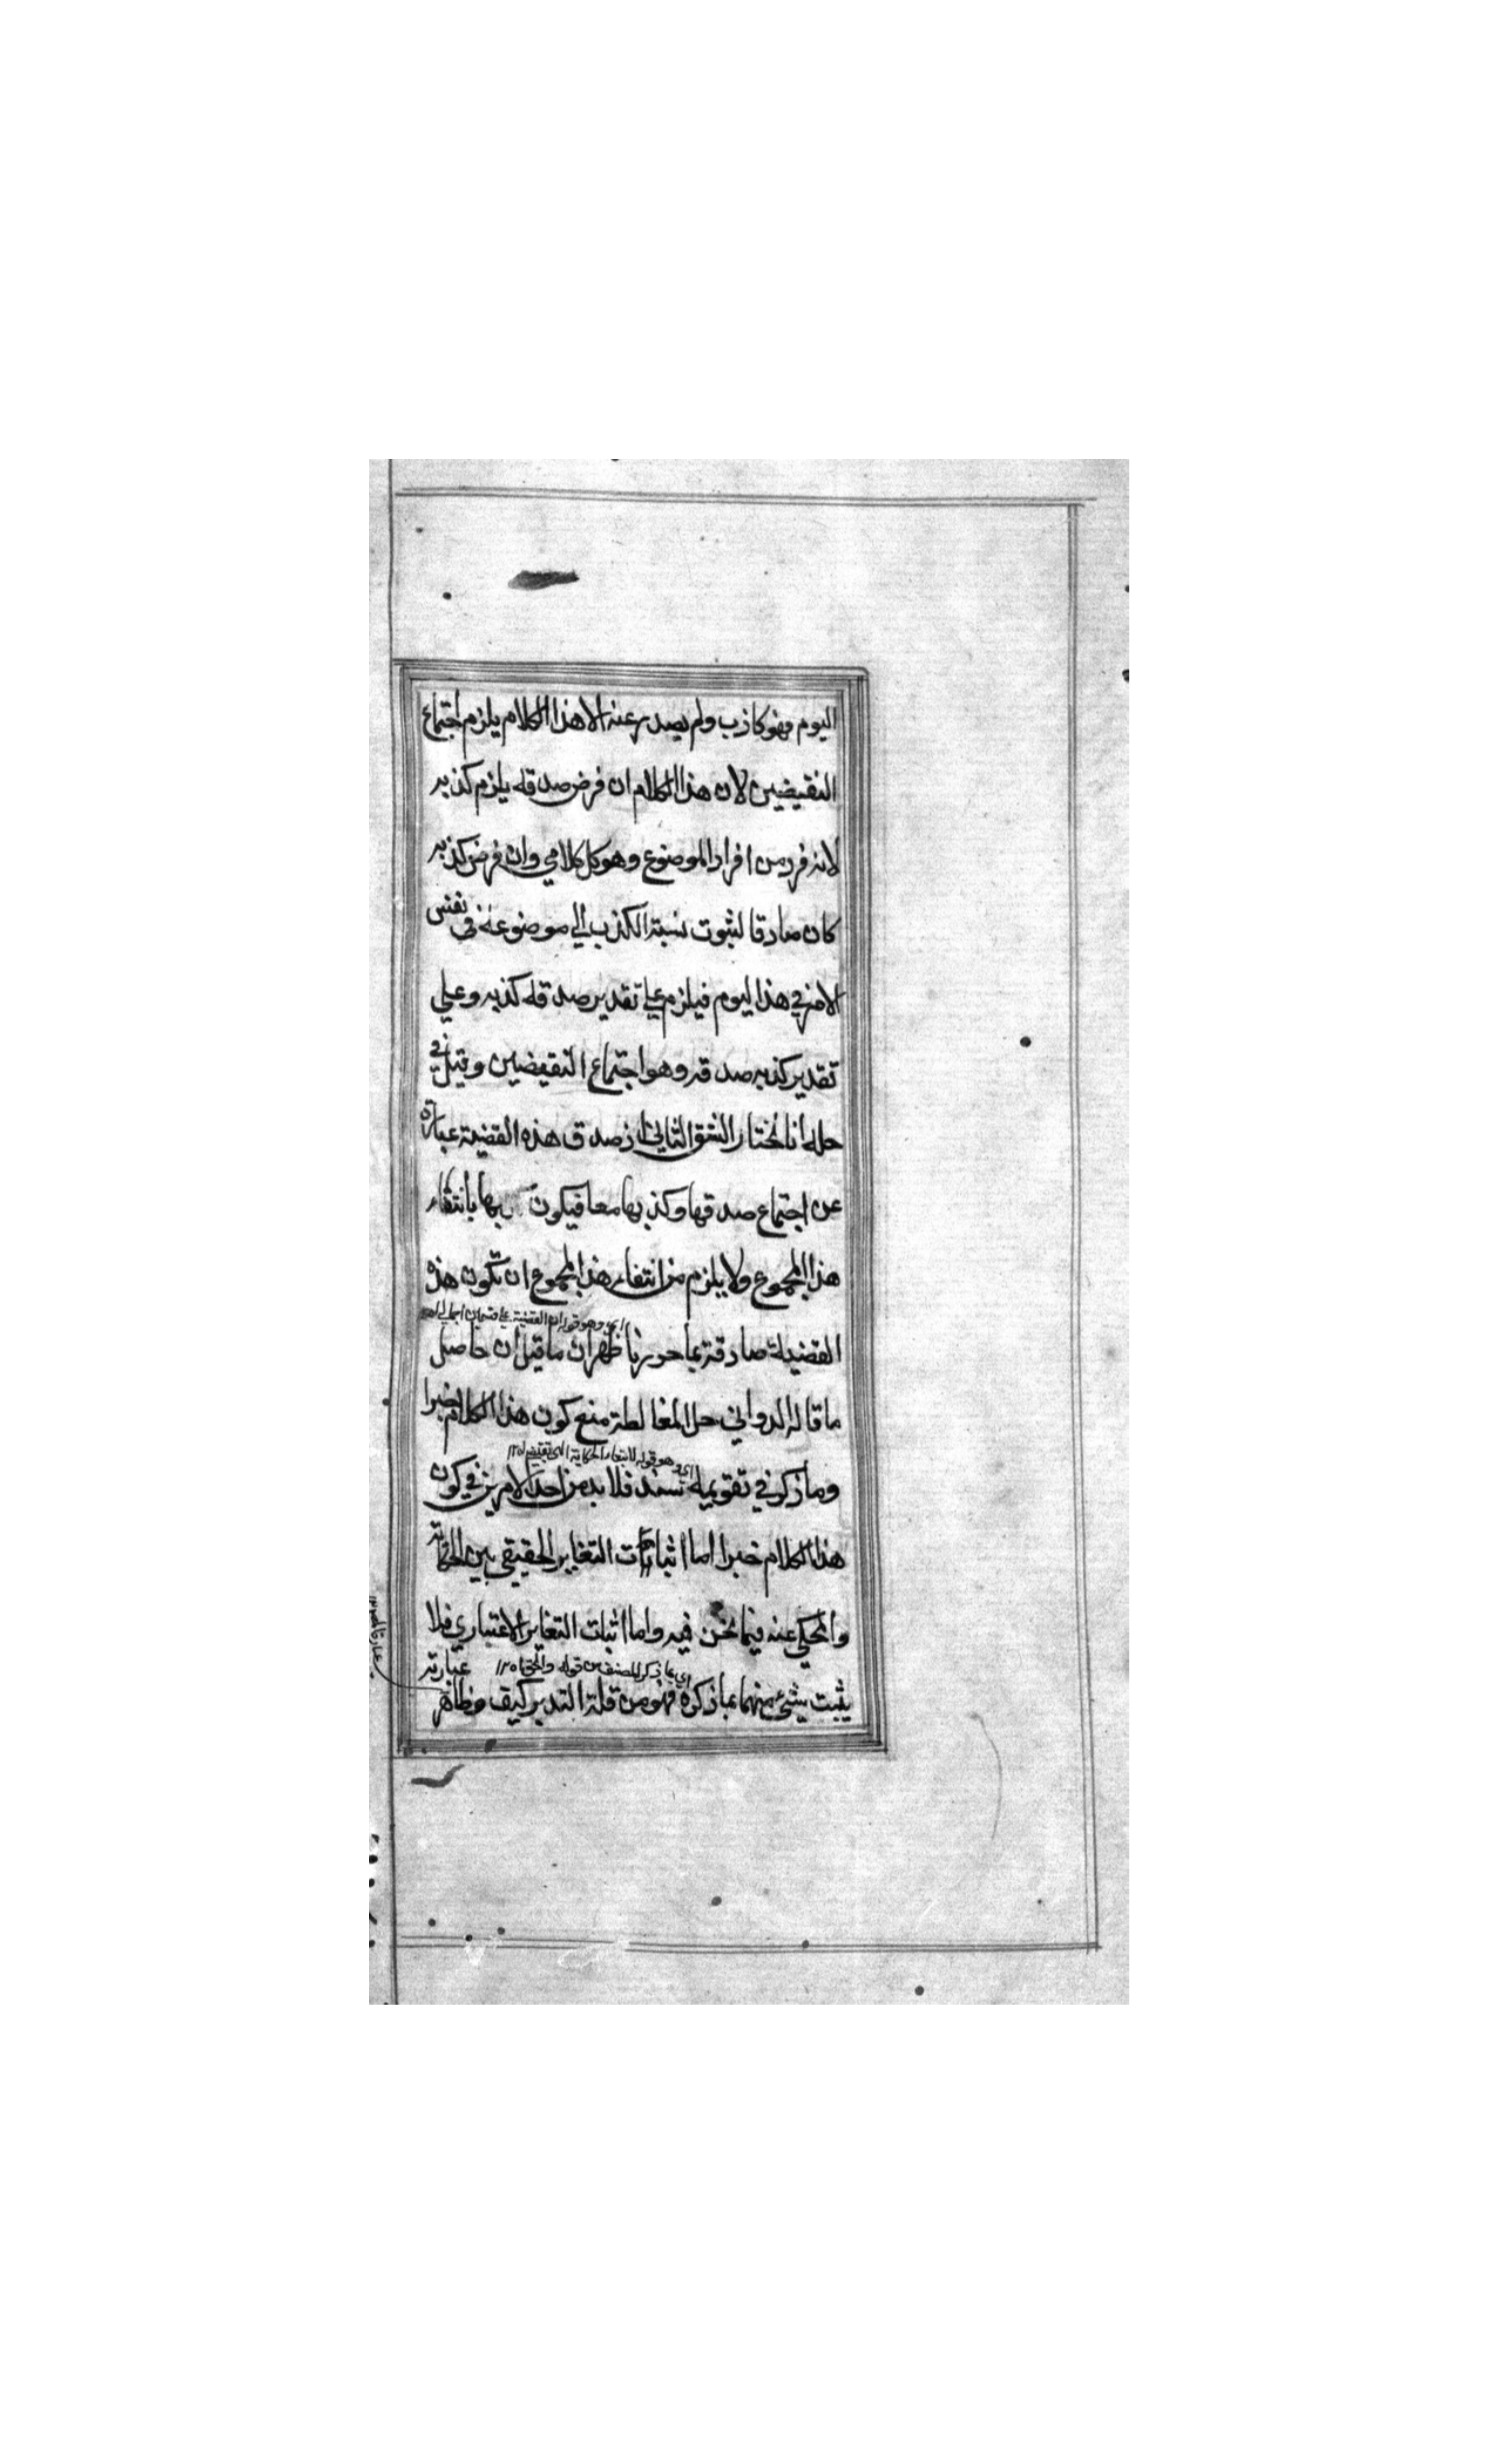 اليوم فهو كاذب ولم يصدر عنه الا هذا الكلام يلزم اجتماع
النقيضين لان هذا الكلام ان فرض صدقه يلزم كذبه
لانه فرد من افراد الموضوع وهو كل كلامي وان فرض كذبه
كان صادقا لثبوت نسبة الكذب الي موضوعه في نفس
الامر في هذا اليوم فيلزم علي تقدير صدقه كذبه وعلي
تقدير كذبه صدقه وهو اجتماع النقيضين وقيل في
حله انا نختار الشق الثاني اذ صدق هذه القضية عبارة
عن اجتماع صدقها وكذبها معا فيكون بها بانتفاء
هذا المجموع ولا يلزم من انتفاء هذا المجموع ان تكون هذه
اي وهو قوله ان القضية علي
القضية صادقة بما حررنا ظهر ان ما قيل ان حاصل
ما قاله الدواني حل المغالطة منع كون هذا الكلام خبرا
اي وهو قوله لانتفاء الحكاية التي
وما ذكر في تقويمه سند فلا بد من احد الامرين في كون
هذا الكلام خبرا اما اثبات التغاير الحقيقي بين الحكاية
والمحكي عنه فيما نحن فيه واما اثبات التغاير الاعتباري فلا
اي بما ذكر المصنف من قوله والحق ١٢
عبارته
يثبت شئ منهما بما ذكره فهو من قلة التدبر كيف وظاهر